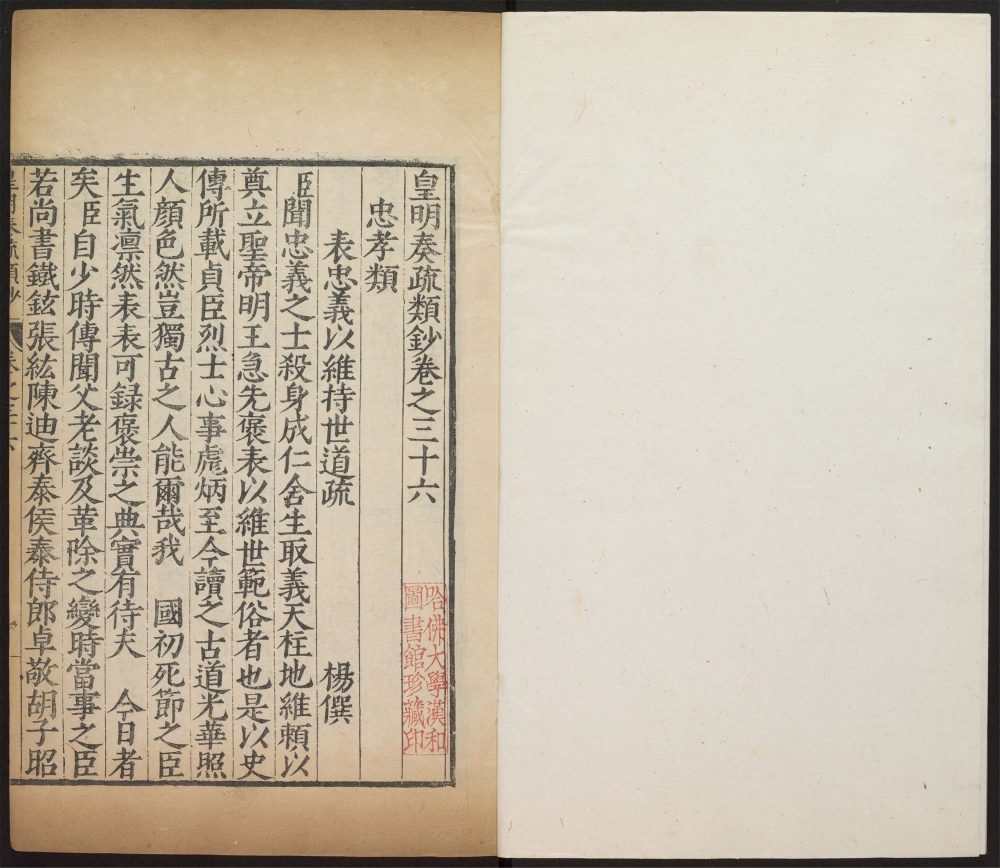 皇明奏疏類鈔卷之三十六
忠孝類
表忠義以維持世道疏 楊僎
臣聞忠義之士殺身成仁舍生取義天柱地維賴以
奠立聖帝明王急先褒表以維世範俗者也是以史
傳所載貞臣烈士心事彪炳至今讀之古道光華照
人顏色然豈獨古之人能爾哉我 國初死節之臣
生氣凛然表表可録褒崇之典實有待夫 今日者
矣臣自少時傳聞父老談及革除之變時當事之臣
若尚書鐵鉉張紞陳迪齊泰侯泰侍郎卓敬胡子昭
哈佛大學漢和
圖書館珍藏印